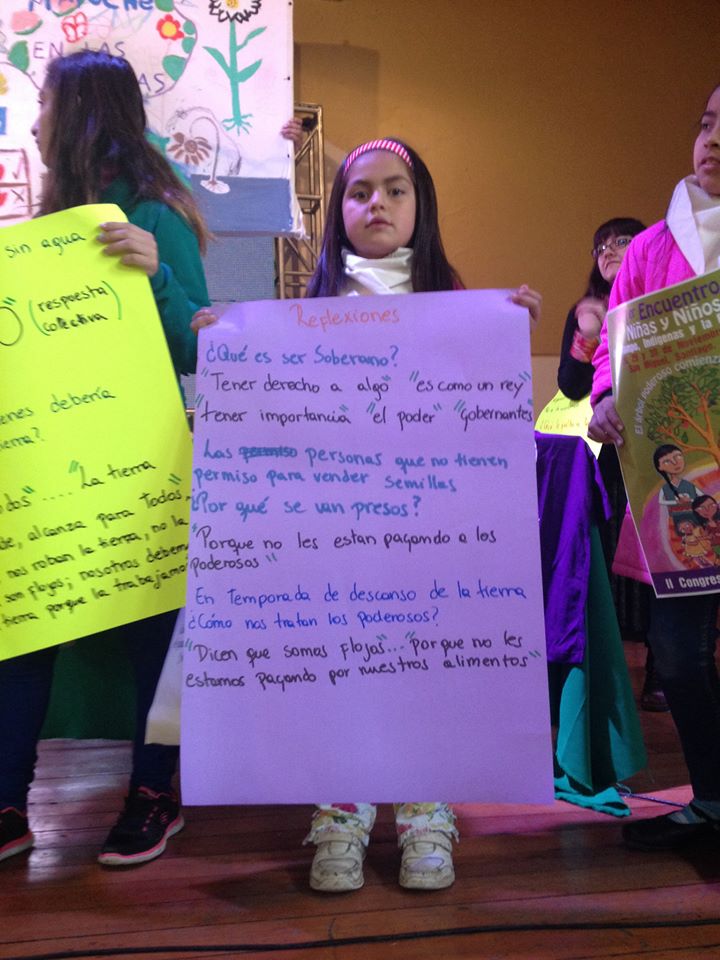 MAPUCHE
EN LAS
AS
sin agua
O" (respuesta
colectiva)
enes debería
ierra?
dos" .... La tierra
de, alcanza para Todos,
nos roban la tierra, no la
son flojos; nosotros debem
tierra porque la trabajamo
Reflexiones
¿Qué es ser Soberano?
"Tener derecho a algo" "es como un rey"
"tener importancia" "el poder" "Gobernantes"
Las permiso personas que no tienen
permiso para vender semillas
¿Por qué se van presos?
"Porque no les estan pagando a los
poderosos"
En Temporada de descanso de la tierra
¿Cómo nos tratan los poderosos?
"Dicen que somos flojos"... "porque no les
estamos pagando por nuestros alimentos"
1er Encuentro
Niñas y Niños
mpo, Indígenas y la
San Miguel, Santiago
El árbol poderoso comienza
II Congres